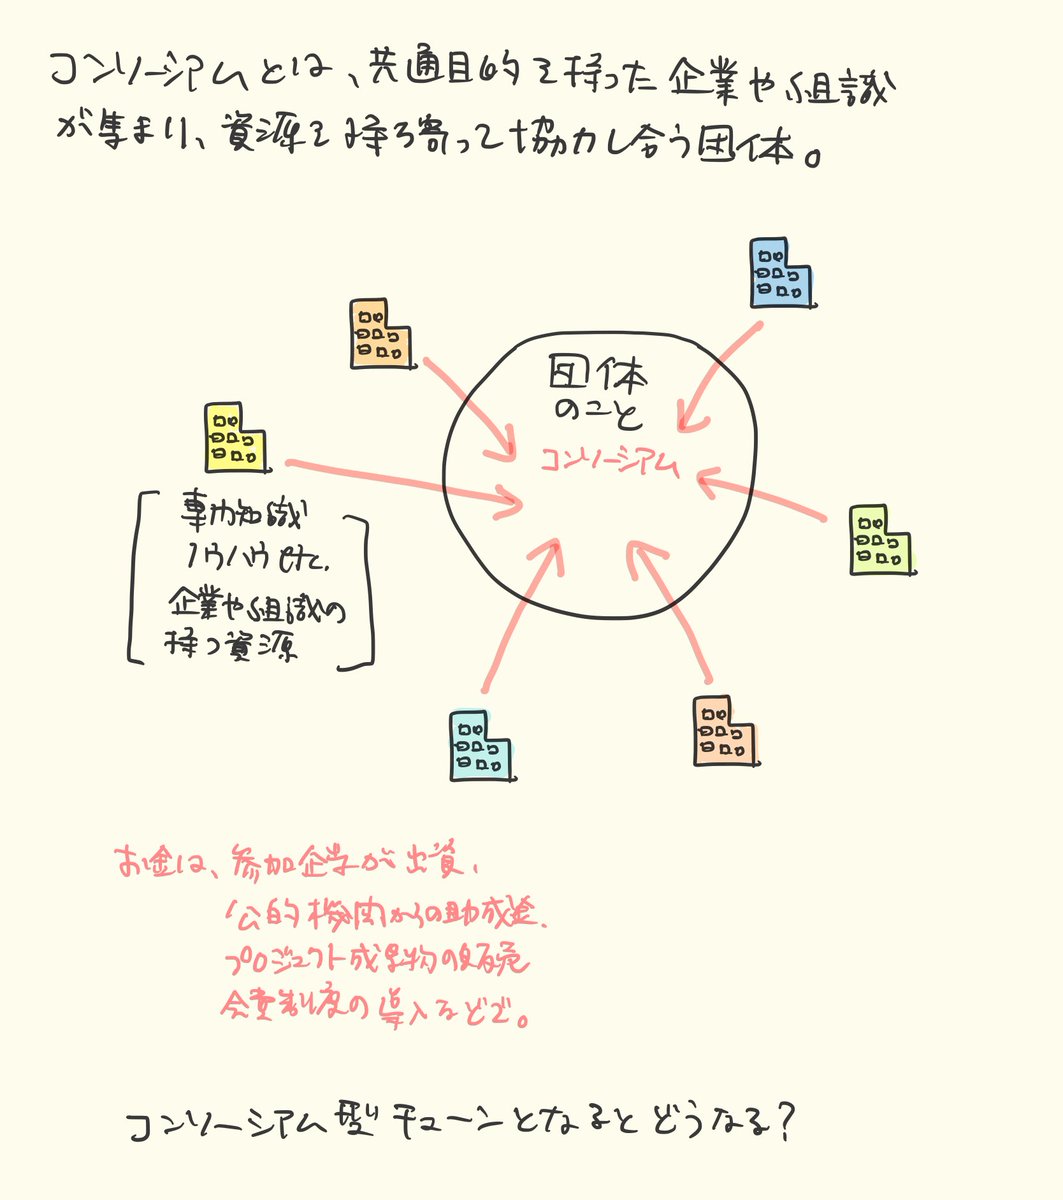 コンソーシアムとは、共通目的を持った企業や組識
が集まり、資源を持ち寄って協力し合う団体。
団体
のこと
コンソーシアム
専門知識
ノウハウ etc.
企業や組識の
持つ資源
お金は、参加企業が出資、
公的機関からの助成金、
プロジェクト成果物の販売
会費制度の導入などで。
コンソーシアム型チェーンとなるとどうなる？